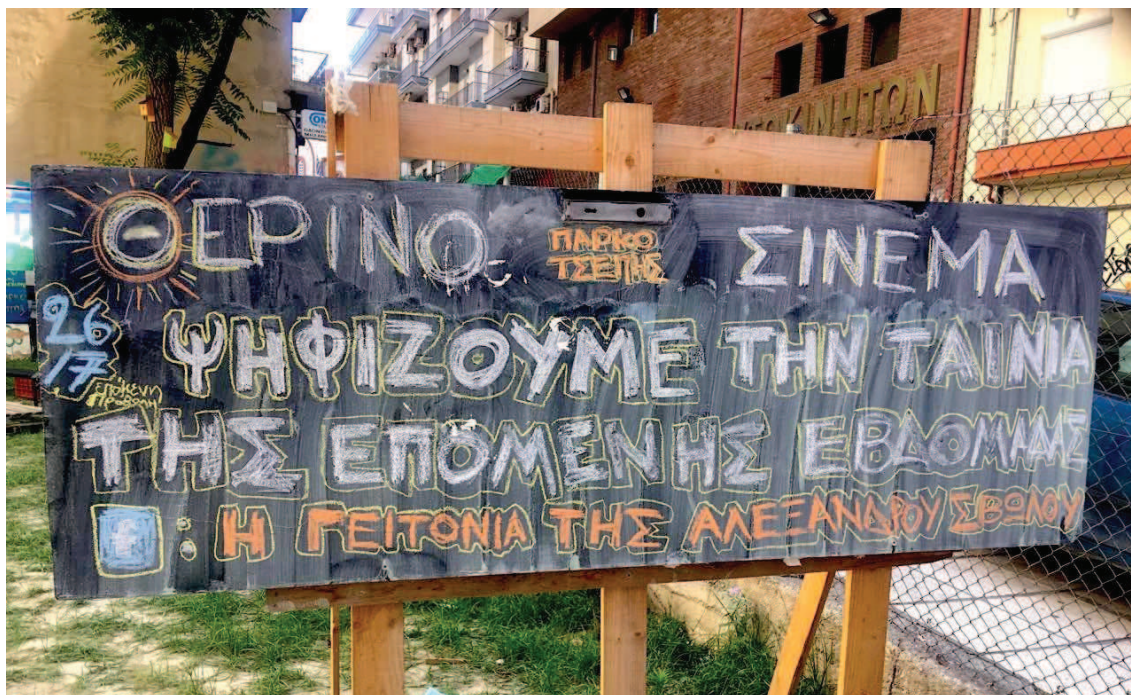 ΘΕΡΙΝΟ ΣΙΝΕΜΑ
ΠΑΡΚΟ
ΤΣΕΠΗΣ
26/7
επόμενη
προβολή
ΨΗΦΙΖΟΥΜΕ ΤΗΝ ΤΑΙΝΙΑ
ΤΗΣ ΕΠΟΜΕΝΗΣ ΕΒΔΟΜΑΔΑΣ
f: Η ΓΕΙΤΟΝΙΑ ΤΗΣ ΑΛΕΞΑΝΔΡΟΥ ΣΒΩΛΟΥ